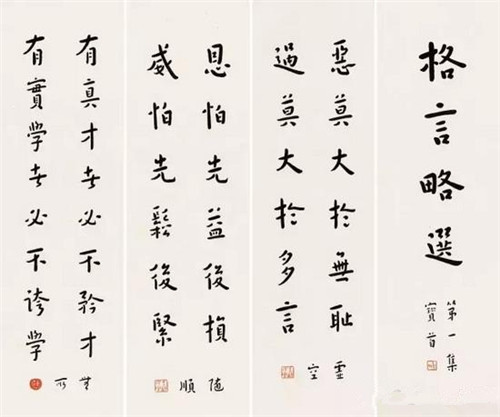 格言略選
第一集
寶首
惡莫大於無恥
過莫大於多言
空
恩怕先益後損
威怕先鬆後緊
随
順
有真才者必不矜才
有實学者必不誇学
無
所